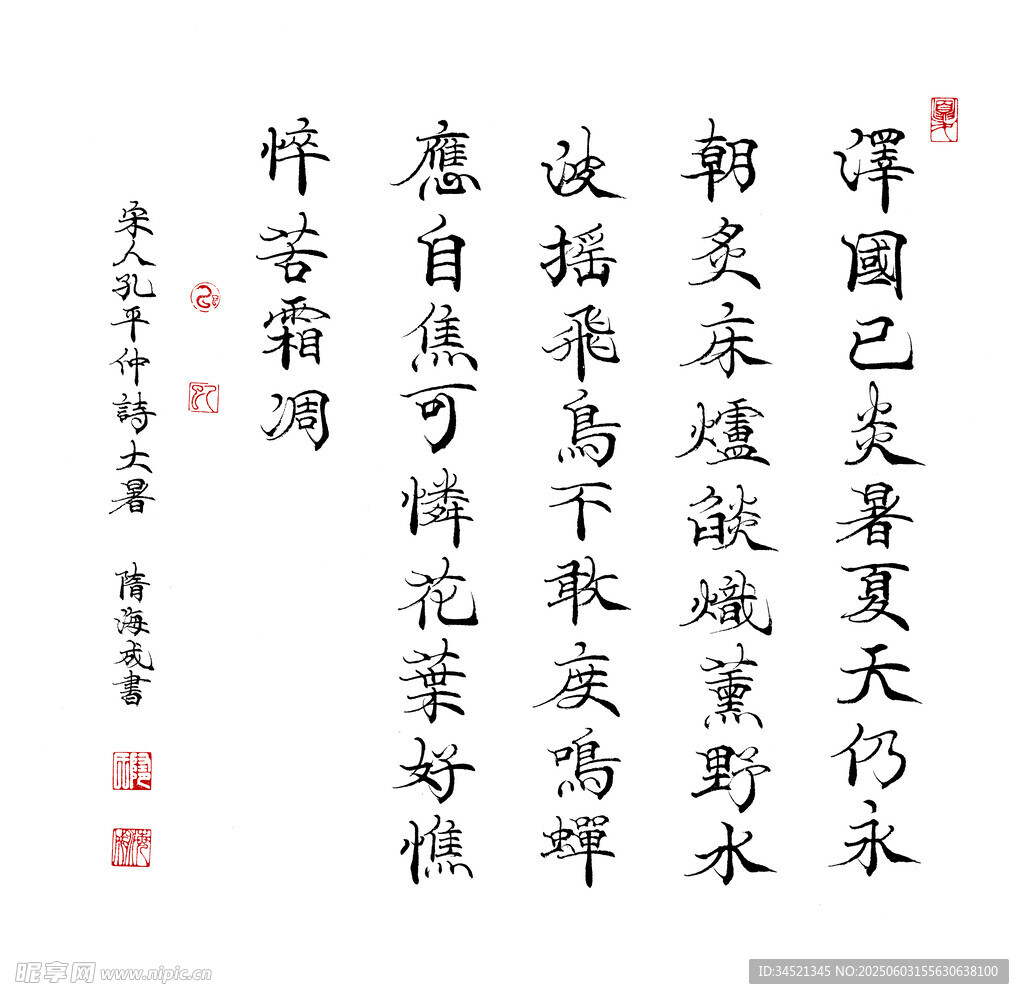 澤國已炎暑夏天仍永
朝炙床爐燄熾薰野水
波摇飛鳥不敢度鳴蟬
應自焦可憐花葉好憔
悴苦霜凋
宋人孔平仲詩大暑 隋海成書
昵享网 www.nipic.cn
ID:34521345 NO:20250603155630638100